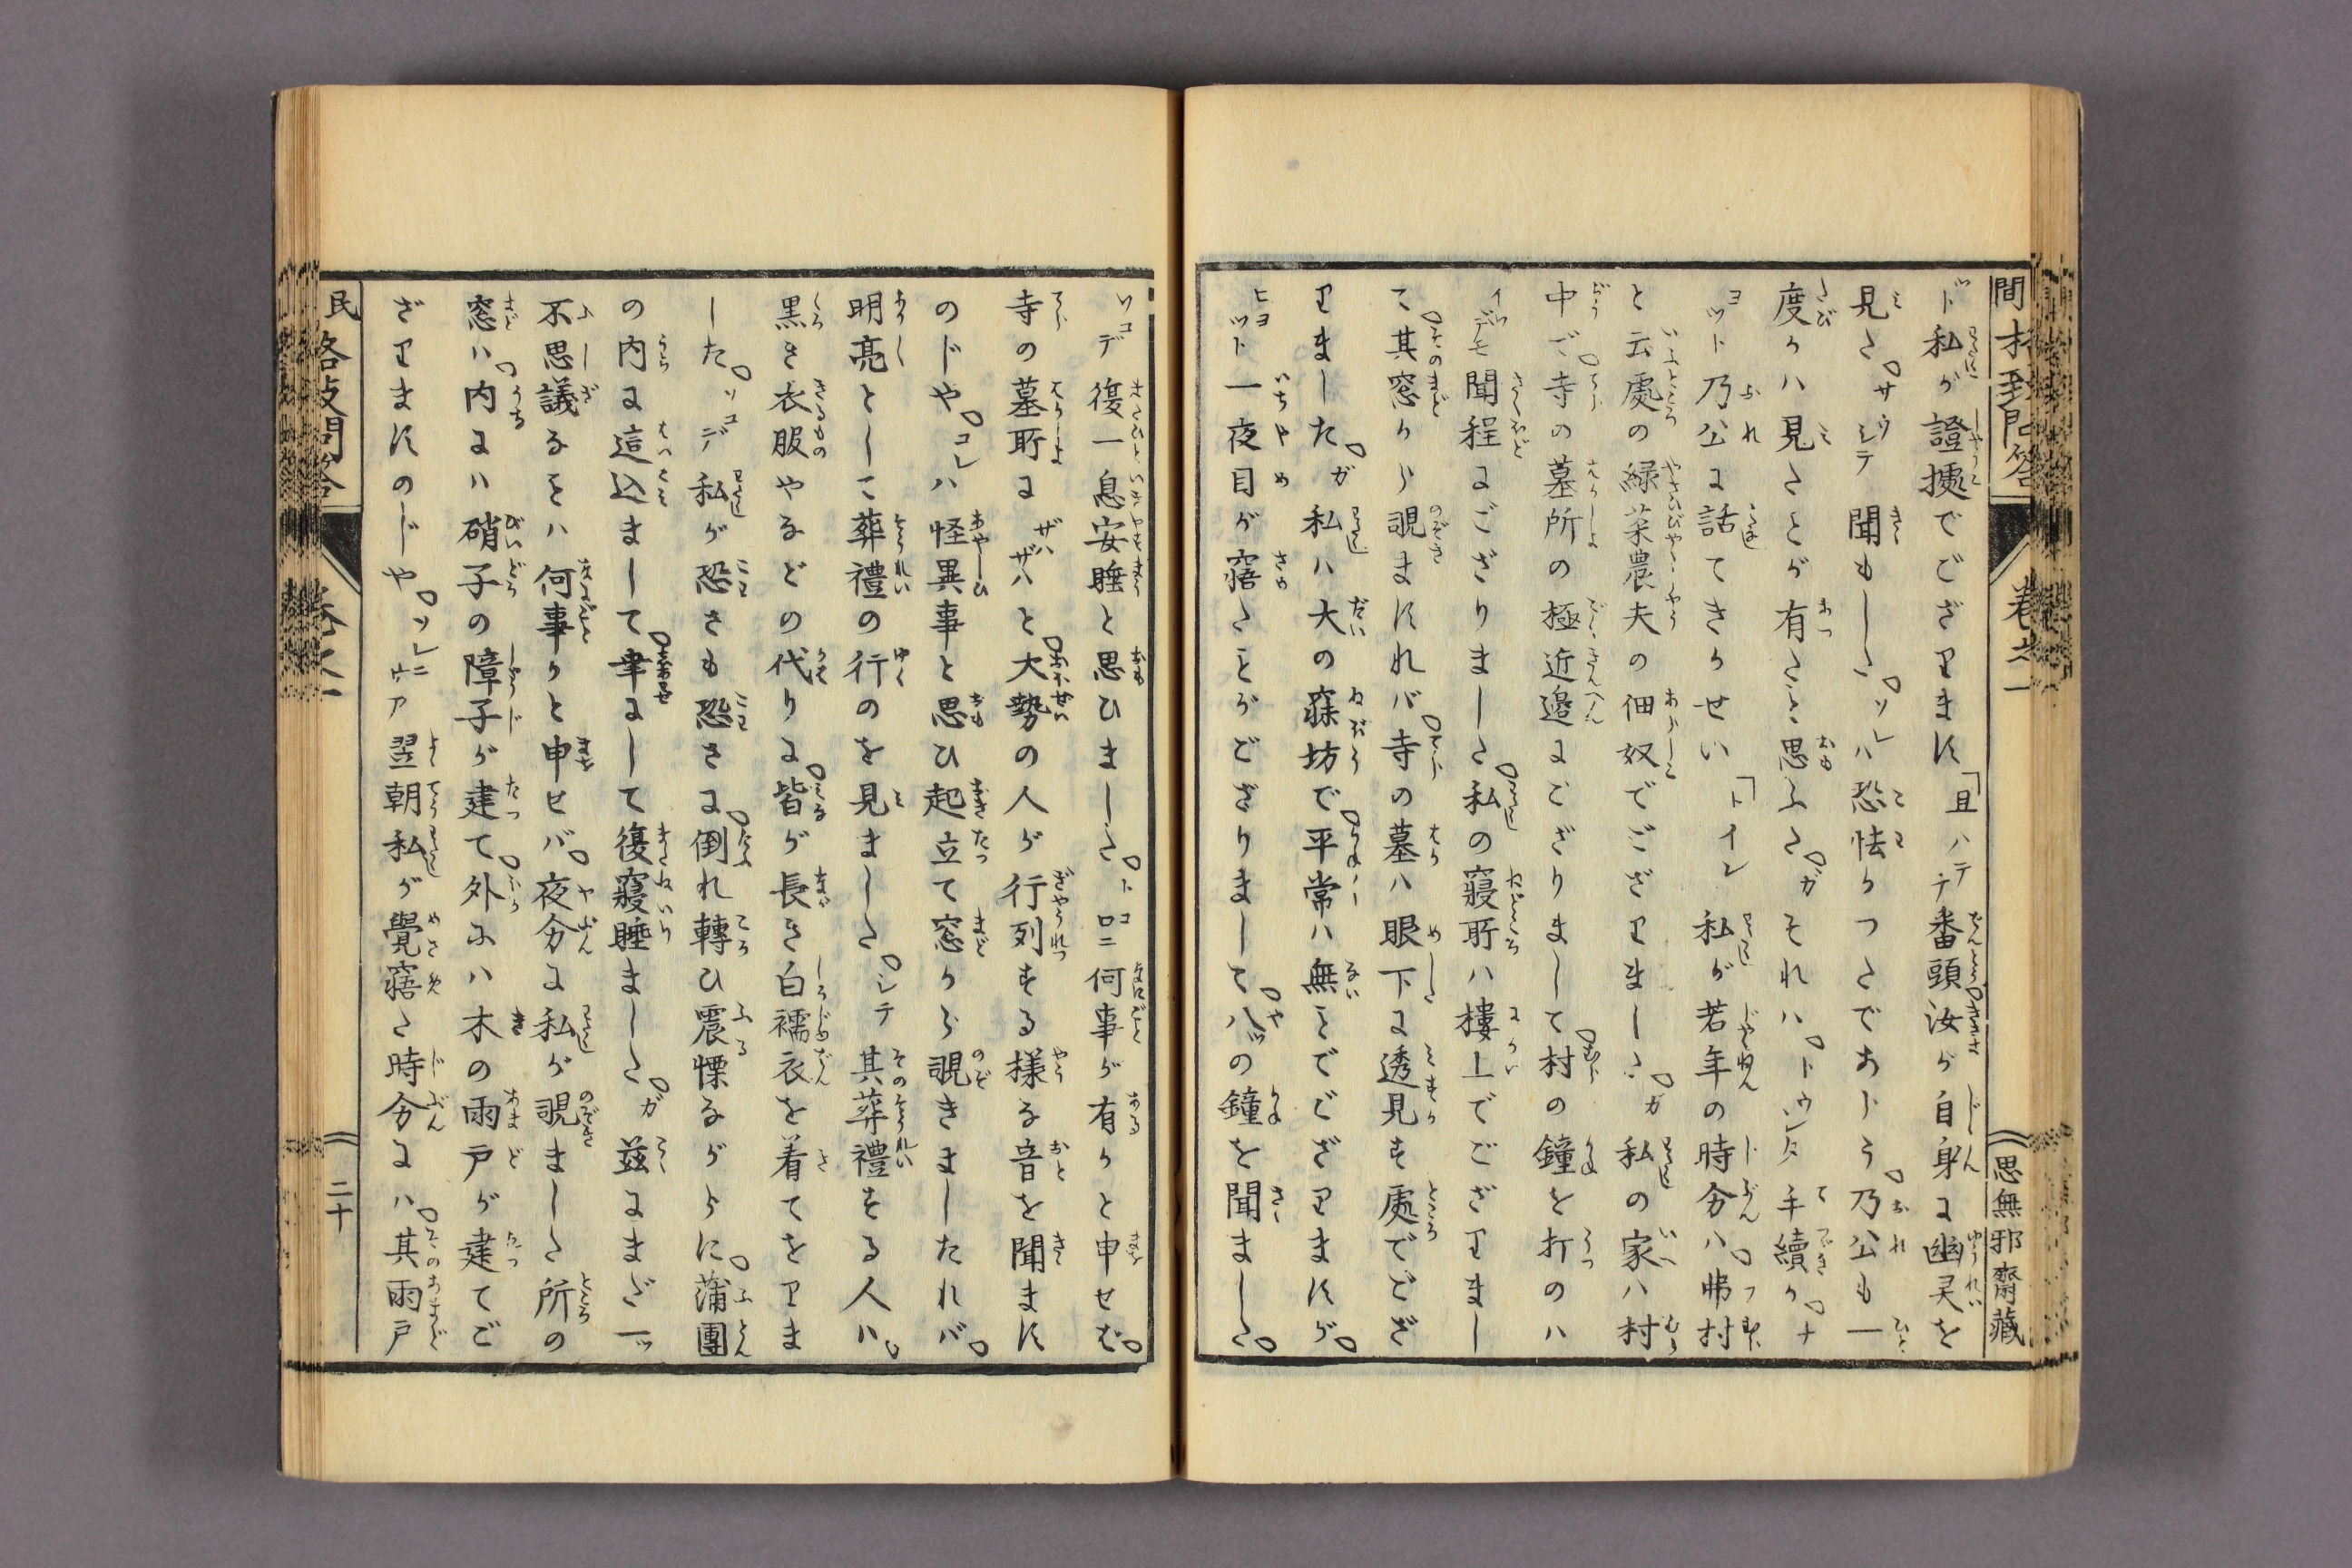 ヅト私が證據でござりまに「且ハテテ番頭汝が自身に幽灵を
見た。サウシテ聞もした。ソレハ恐怯かつたであらう。乃公も一
度かハ見たとが有たと思ふた。ガそれハ。ドウシタ手續か。ナ
ヨツト乃公に話てきかせい「トイレ私が若年の時分ハ。弗村
と云處の緑菜農夫の佃奴でござりました。ガ私の家ハ村
中で。寺の墓所の極近邉にござりまして。村の鐘を打のハ
イツデモ聞程にござりました。私の寢所ハ樓上でござりまし
て。其窓から覗まれバ。寺の墓ハ眼下に透見す處でござ
りました。ガ私ハ大の寐坊で。平常ハ無とでござりまにが。
ヒヨツト一夜目が寤たとがござりまして。八ツの鐘を聞ました。
ソコデ復一息安睡と思ひました。トコロニ何事が有かと申せむ。
寺の墓所にザハザハと。大勢の人が行列する様な音を聞まに
のじや。コレハ怪異事と思ひ起立て窓から覗きましたれバ。
明亮として葬禮の行のを見ました。シテ其葬禮をる人ハ。
黒き衣服やなどの代りに。皆が長き白襦衣を着てをりま
した。ソコデ私が恐さも恐さに。倒れ轉ひ震慄ながらに。蒲團
の内に這込まして。幸にして復寢睡ました。ガ茲にまだ一ツ
不思議なをハ何事かと申せバ。夜分に私が覗ました所の
窓ハ。内にハ硝子の障子が建て。外にハ木の雨戸が建てご
ざりまにのじや。ソレニサア翌朝私が覺寤た時分にハ。其雨戸
卷之一
思無邪齋藏
二十